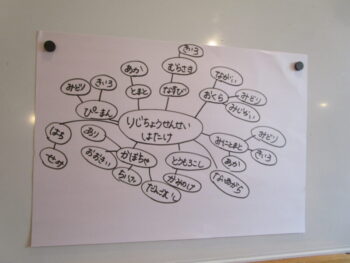 りじちょうせんせい
はたけ
きいろ
むらさき
なすび
あか
とまと
みどり
きいろ
ぴーまん
ながい
みどり
おくら
みじかい
みどり
みにとまと
きいろ
あか
とうもろこし
かみのけ
かぼちゃ
あり
おおきい
はち